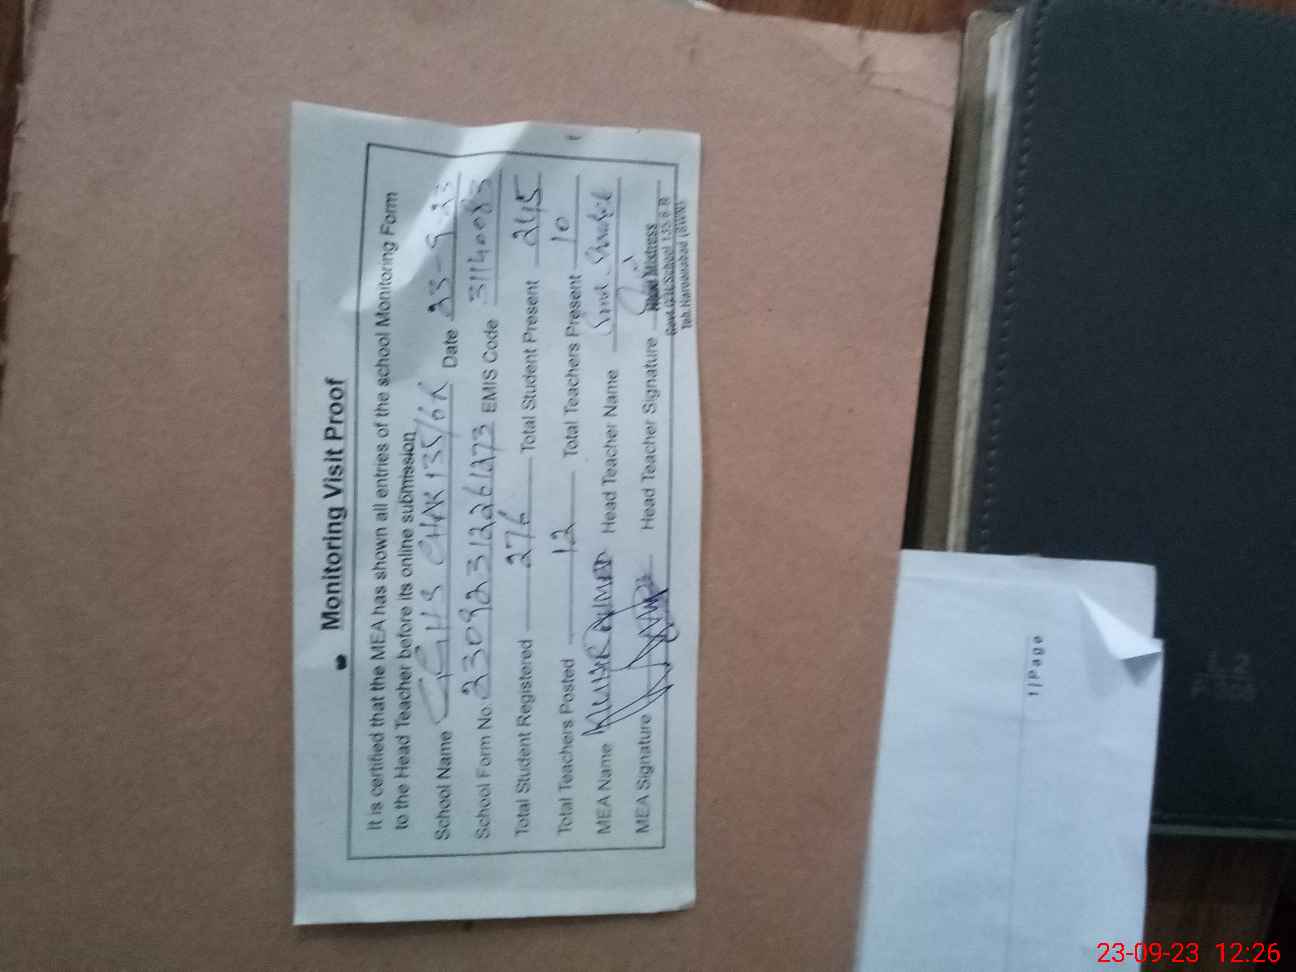 Monitoring Visit Proof
It is certified that the MEA has shown all entries of the school Monitoring Form
to the Head Teacher before its online submission
School Name GGHS CHAK 135/6R Date 23-9-23
School Form No. 230923123261273 EMIS Code 31140083
Total Student Registered 276 Total Student Present 245
Total Teachers Posted 12 Total Teachers Present 10
MEA Name AHMED Head Teacher Name
MEA Signature Head Teacher Signature
Head Mistress
Govt. Girls School 135 6-R
Teh. Haroonabad (BWN)
1|Page
23-09-23 12:26